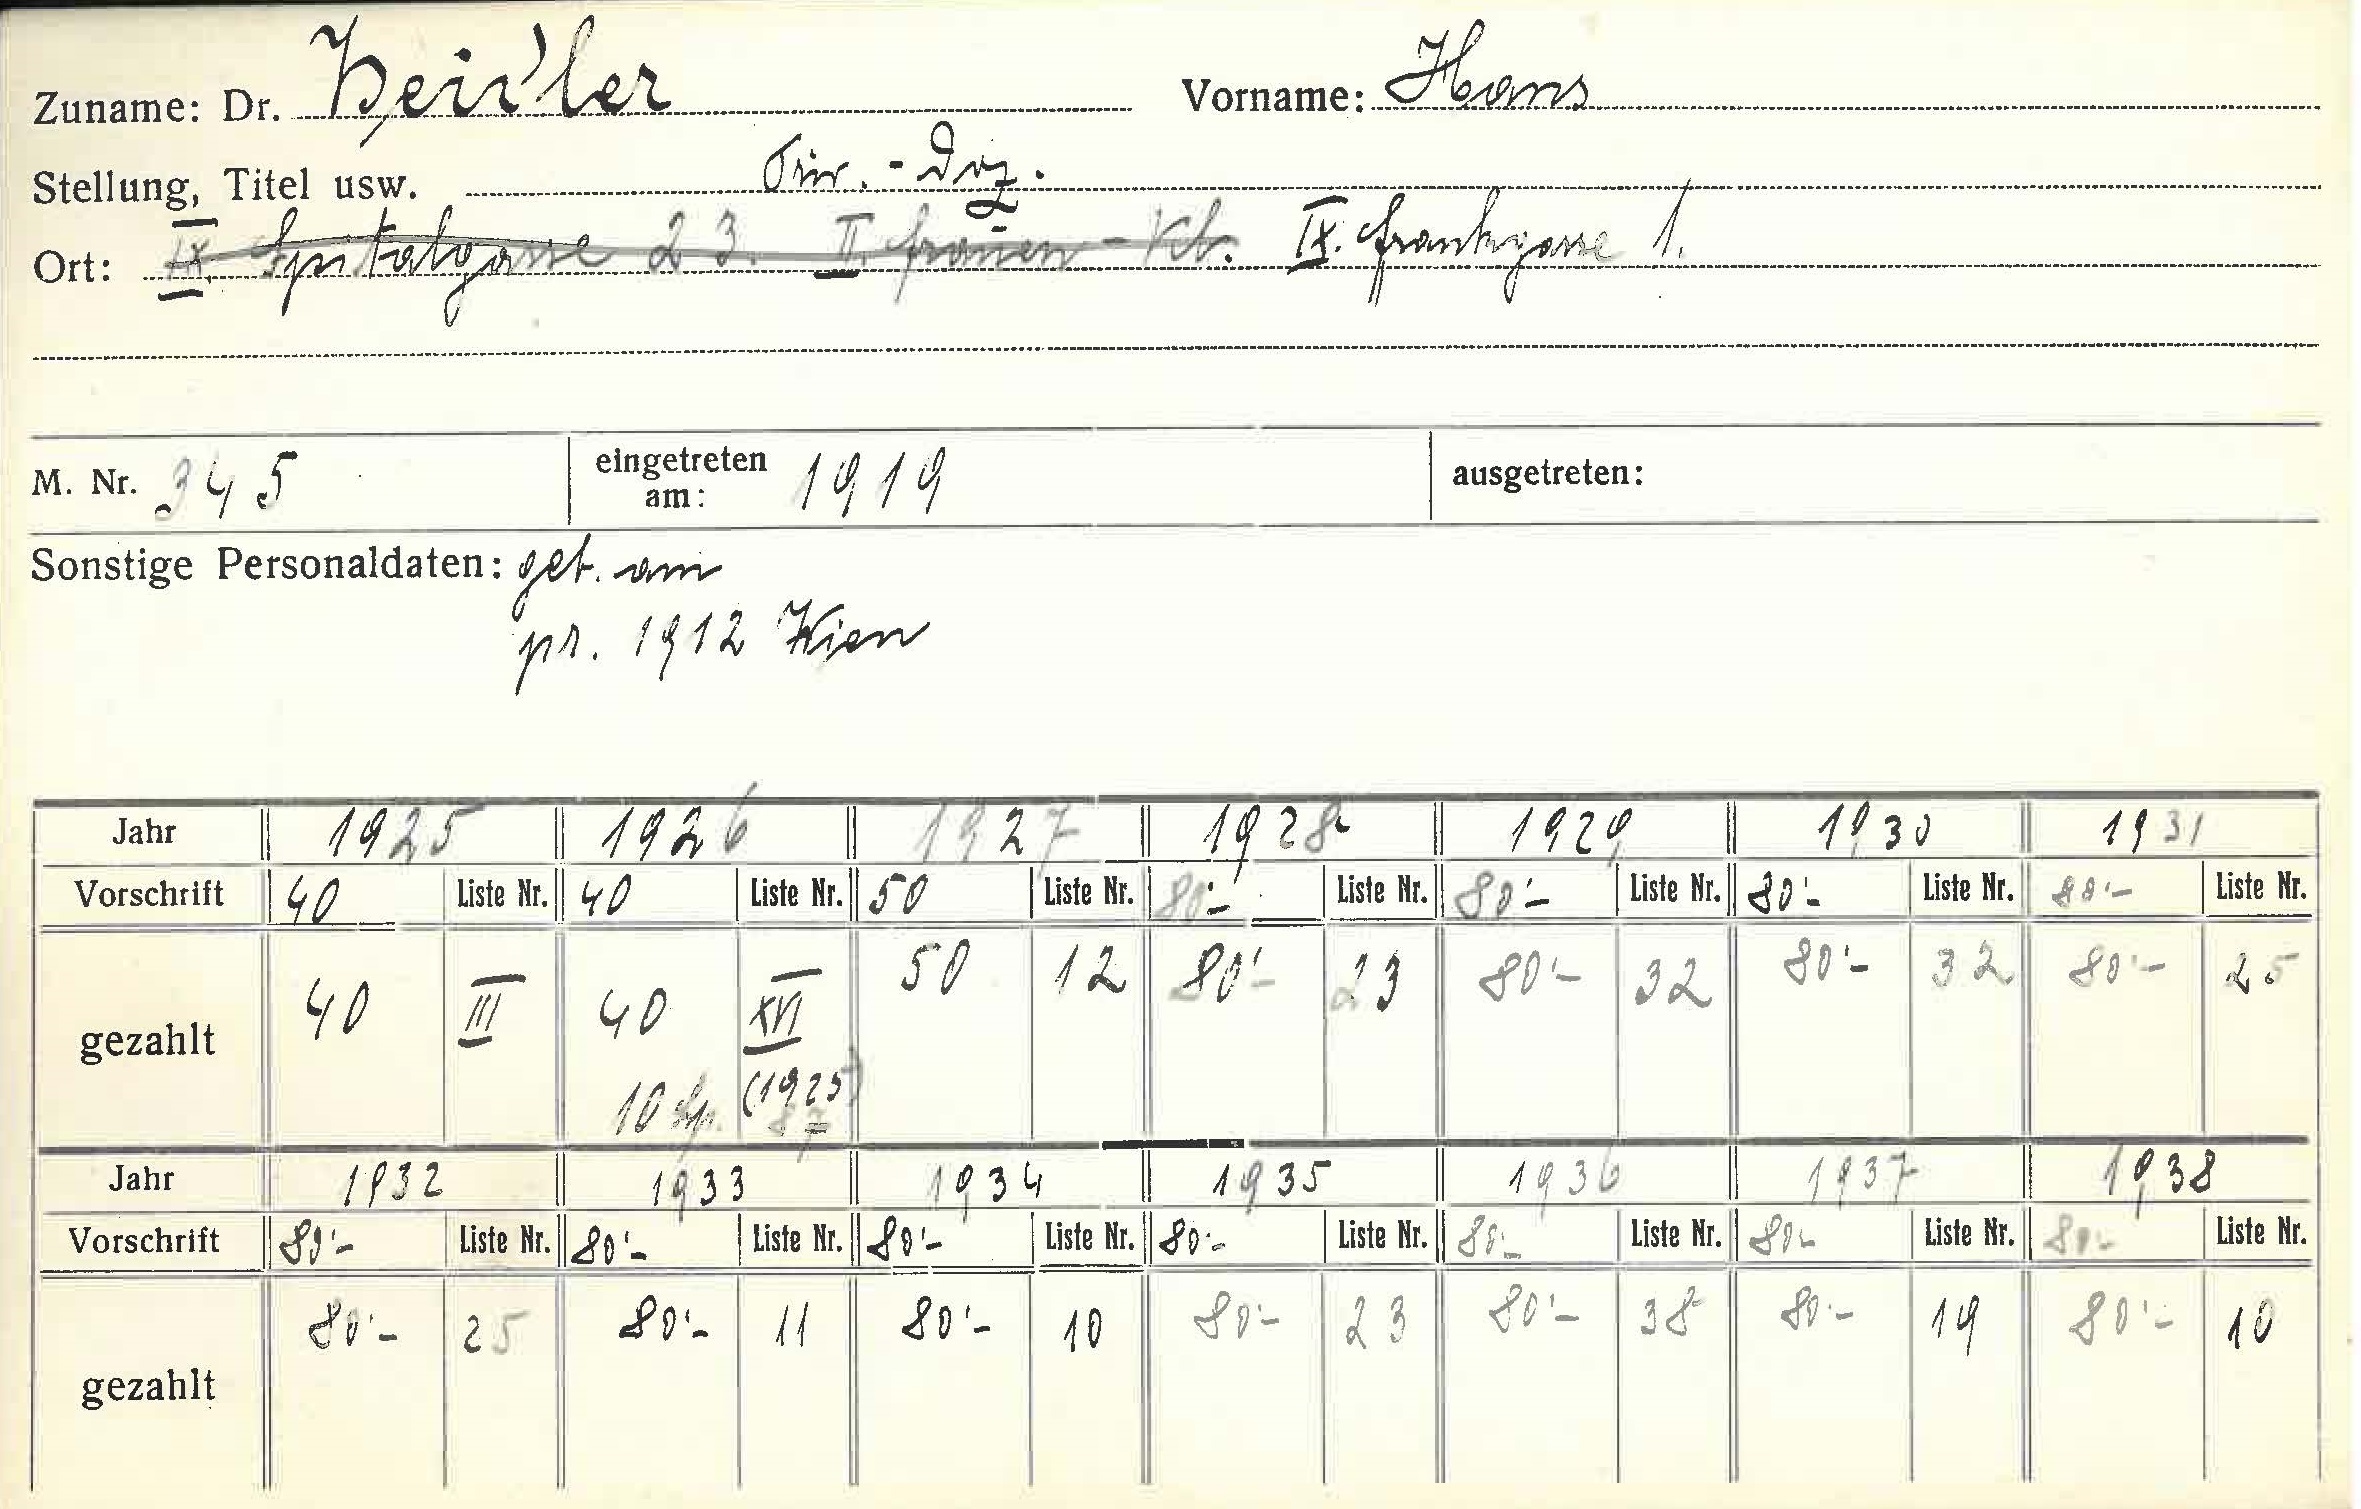 Zuname: Dr. Heidler Vorname: Hans
Stellung, Titel usw. Priv.-Doz.
Ort: IX. Spitalgasse 23. II. Frauen-Kl. IX. Frankgasse 1.
M. Nr. 345 eingetreten am: 1919 ausgetreten:
Sonstige Personaldaten: geb. am
pr. 1912 Wien
Jahr 1925 1926 1927 1928 1929 1930 1931
Vorschrift 40 Liste Nr. 40 Liste Nr. 50 Liste Nr. 80'- Liste Nr. 80'- Liste Nr. 80'- Liste Nr. 80'- Liste Nr.
gezahlt 40 III 40 XVI 50 12 80'- 23 80'- 32 80'- 32 80'- 25
10 Sp. (1925)
Jahr 1932 1933 1934 1935 1936 1937 1938
Vorschrift 80'- Liste Nr. 80'- Liste Nr. 80'- Liste Nr. 80'- Liste Nr. 80'- Liste Nr. 80'- Liste Nr. 80'- Liste Nr.
gezahlt 80'- 25 80'- 11 80'- 10 80'- 23 80'- 38 80'- 19 80'- 10